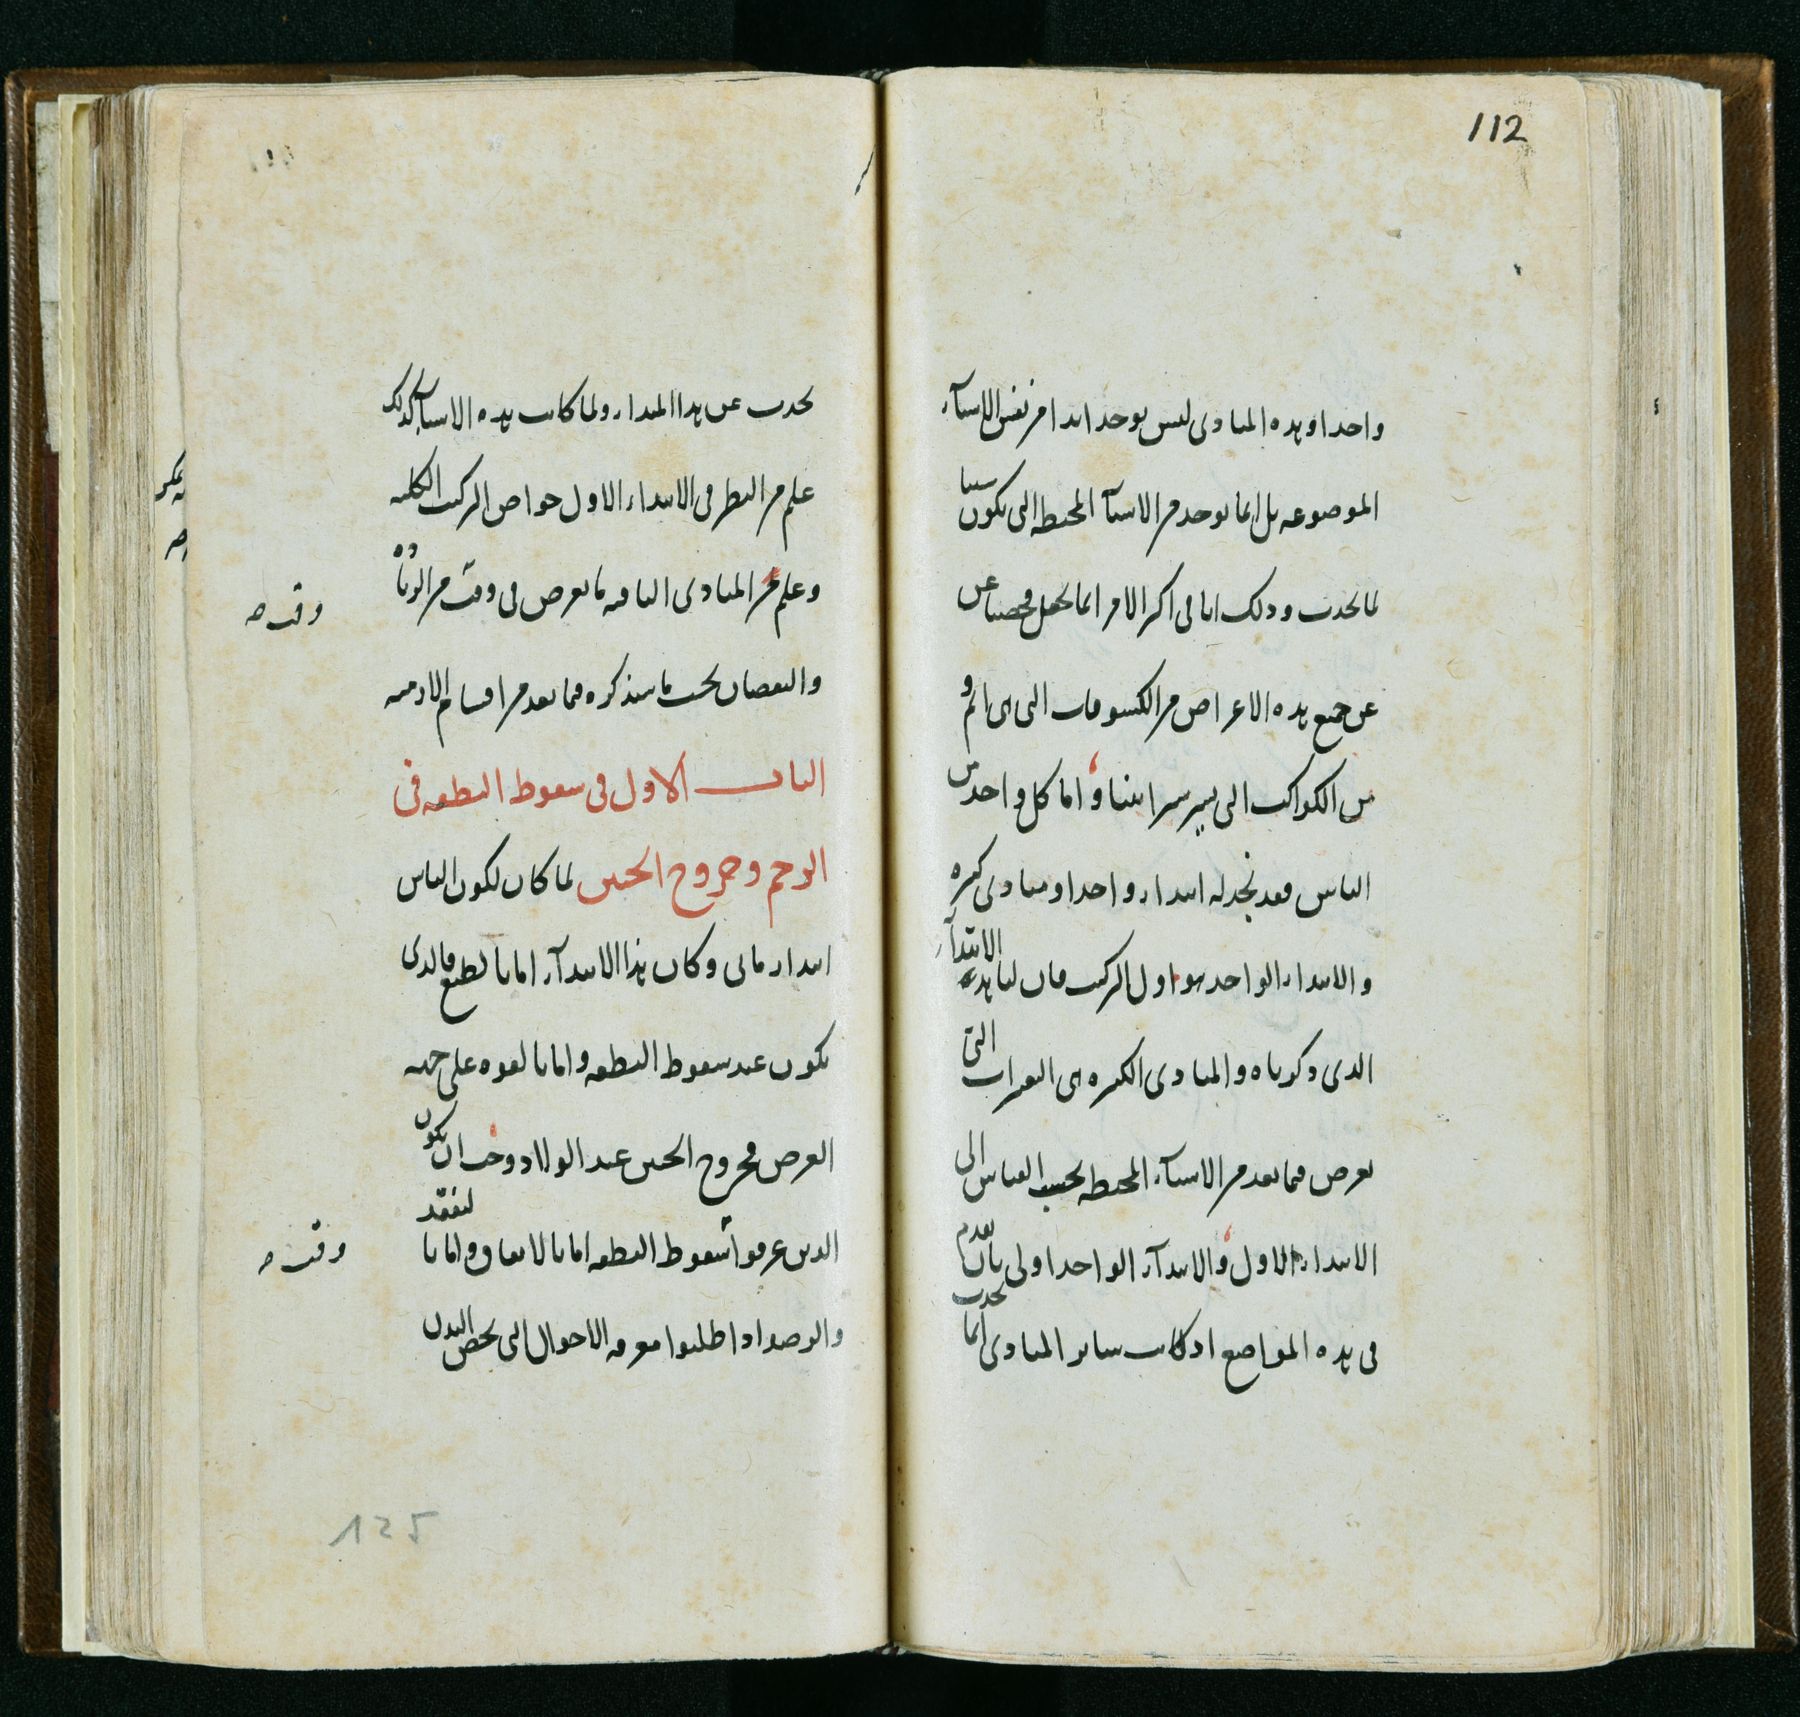 112
واحدا وهذه المبادى ليس يوجد ابدا من نفس الاشيآء
الموضوعه بل انما يوجد من الاشيآء المحيطه التى يكون سببا
لما يحدث وذلك انا فى اكثر الامر انما نجعل فحصنا عن
عن جميع هذه الاعراض من الكسوفات التى هى اتم و
من الكواكب التى يسير سيرا بينا واما كل واحد من
الناس فقد نجد له ابتداء واحدا ومبادى كثيره
والابتداء الواحد هو اول التركيب فان لنا هذه الابتدآء
الذى ذكرناه والمبادى الكثيره هى التغيرات التى
تعرض فيما بعد من الاشيآء المحيطه بحسب القياس الى
الابتداء الاول والابتدآء الواحد اولى بان يقدم
فى هذه المواضع اذ كانت ساير المبادى انما يحدث
يحدث عن هذا المبداء ولما كانت هذه الاشيآء كذلك
علم من النظر فى الابتداء الاول خواص التركيب الكليه
وعلم من المبادى الباقيه ما يعرض فى وقت من الزياده
والنقصان بحسب ما سنذكره فيما بعد من اقسام الازمنه
الباب الاول فى سقوط النطفه فى
الرحم وخروج الجنين لما كان لكون الناس
ابتداء زمانى وكان هذا الابتدآء اما بالطبع فالذى
يكون عند سقوط النطفه واما بالقوه على جهه
العرض فخروج الجنين عند الولاد وجب ان يكون
الذين عرفوا سقوط النطفه اما بالاتفاق واما بالتفقد
والرصد اذا طلبوا معرفه الاحوال التى تخص البدن
وقت صه
وقت صه
125